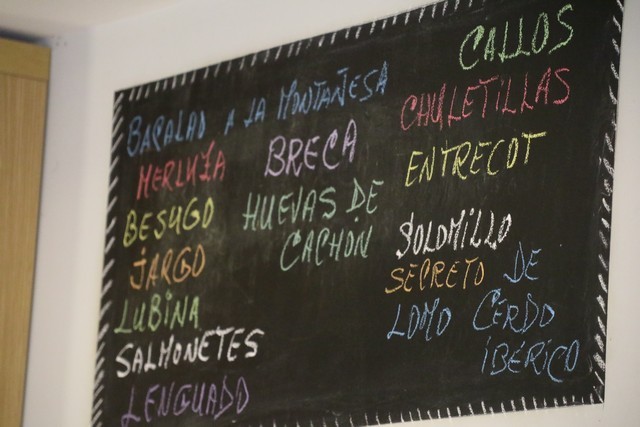 BACALAO A LA MONTAÑESA
MERLUZA
BESUGO
JARGO
LUBINA
SALMONETES
LENGUADO
BRECA
HUEVAS DE
CACHÓN
CALLOS
CHULETILLAS
ENTRECOT
SOLOMILLO
SECRETO DE
LOMO CERDO
IBÉRICO